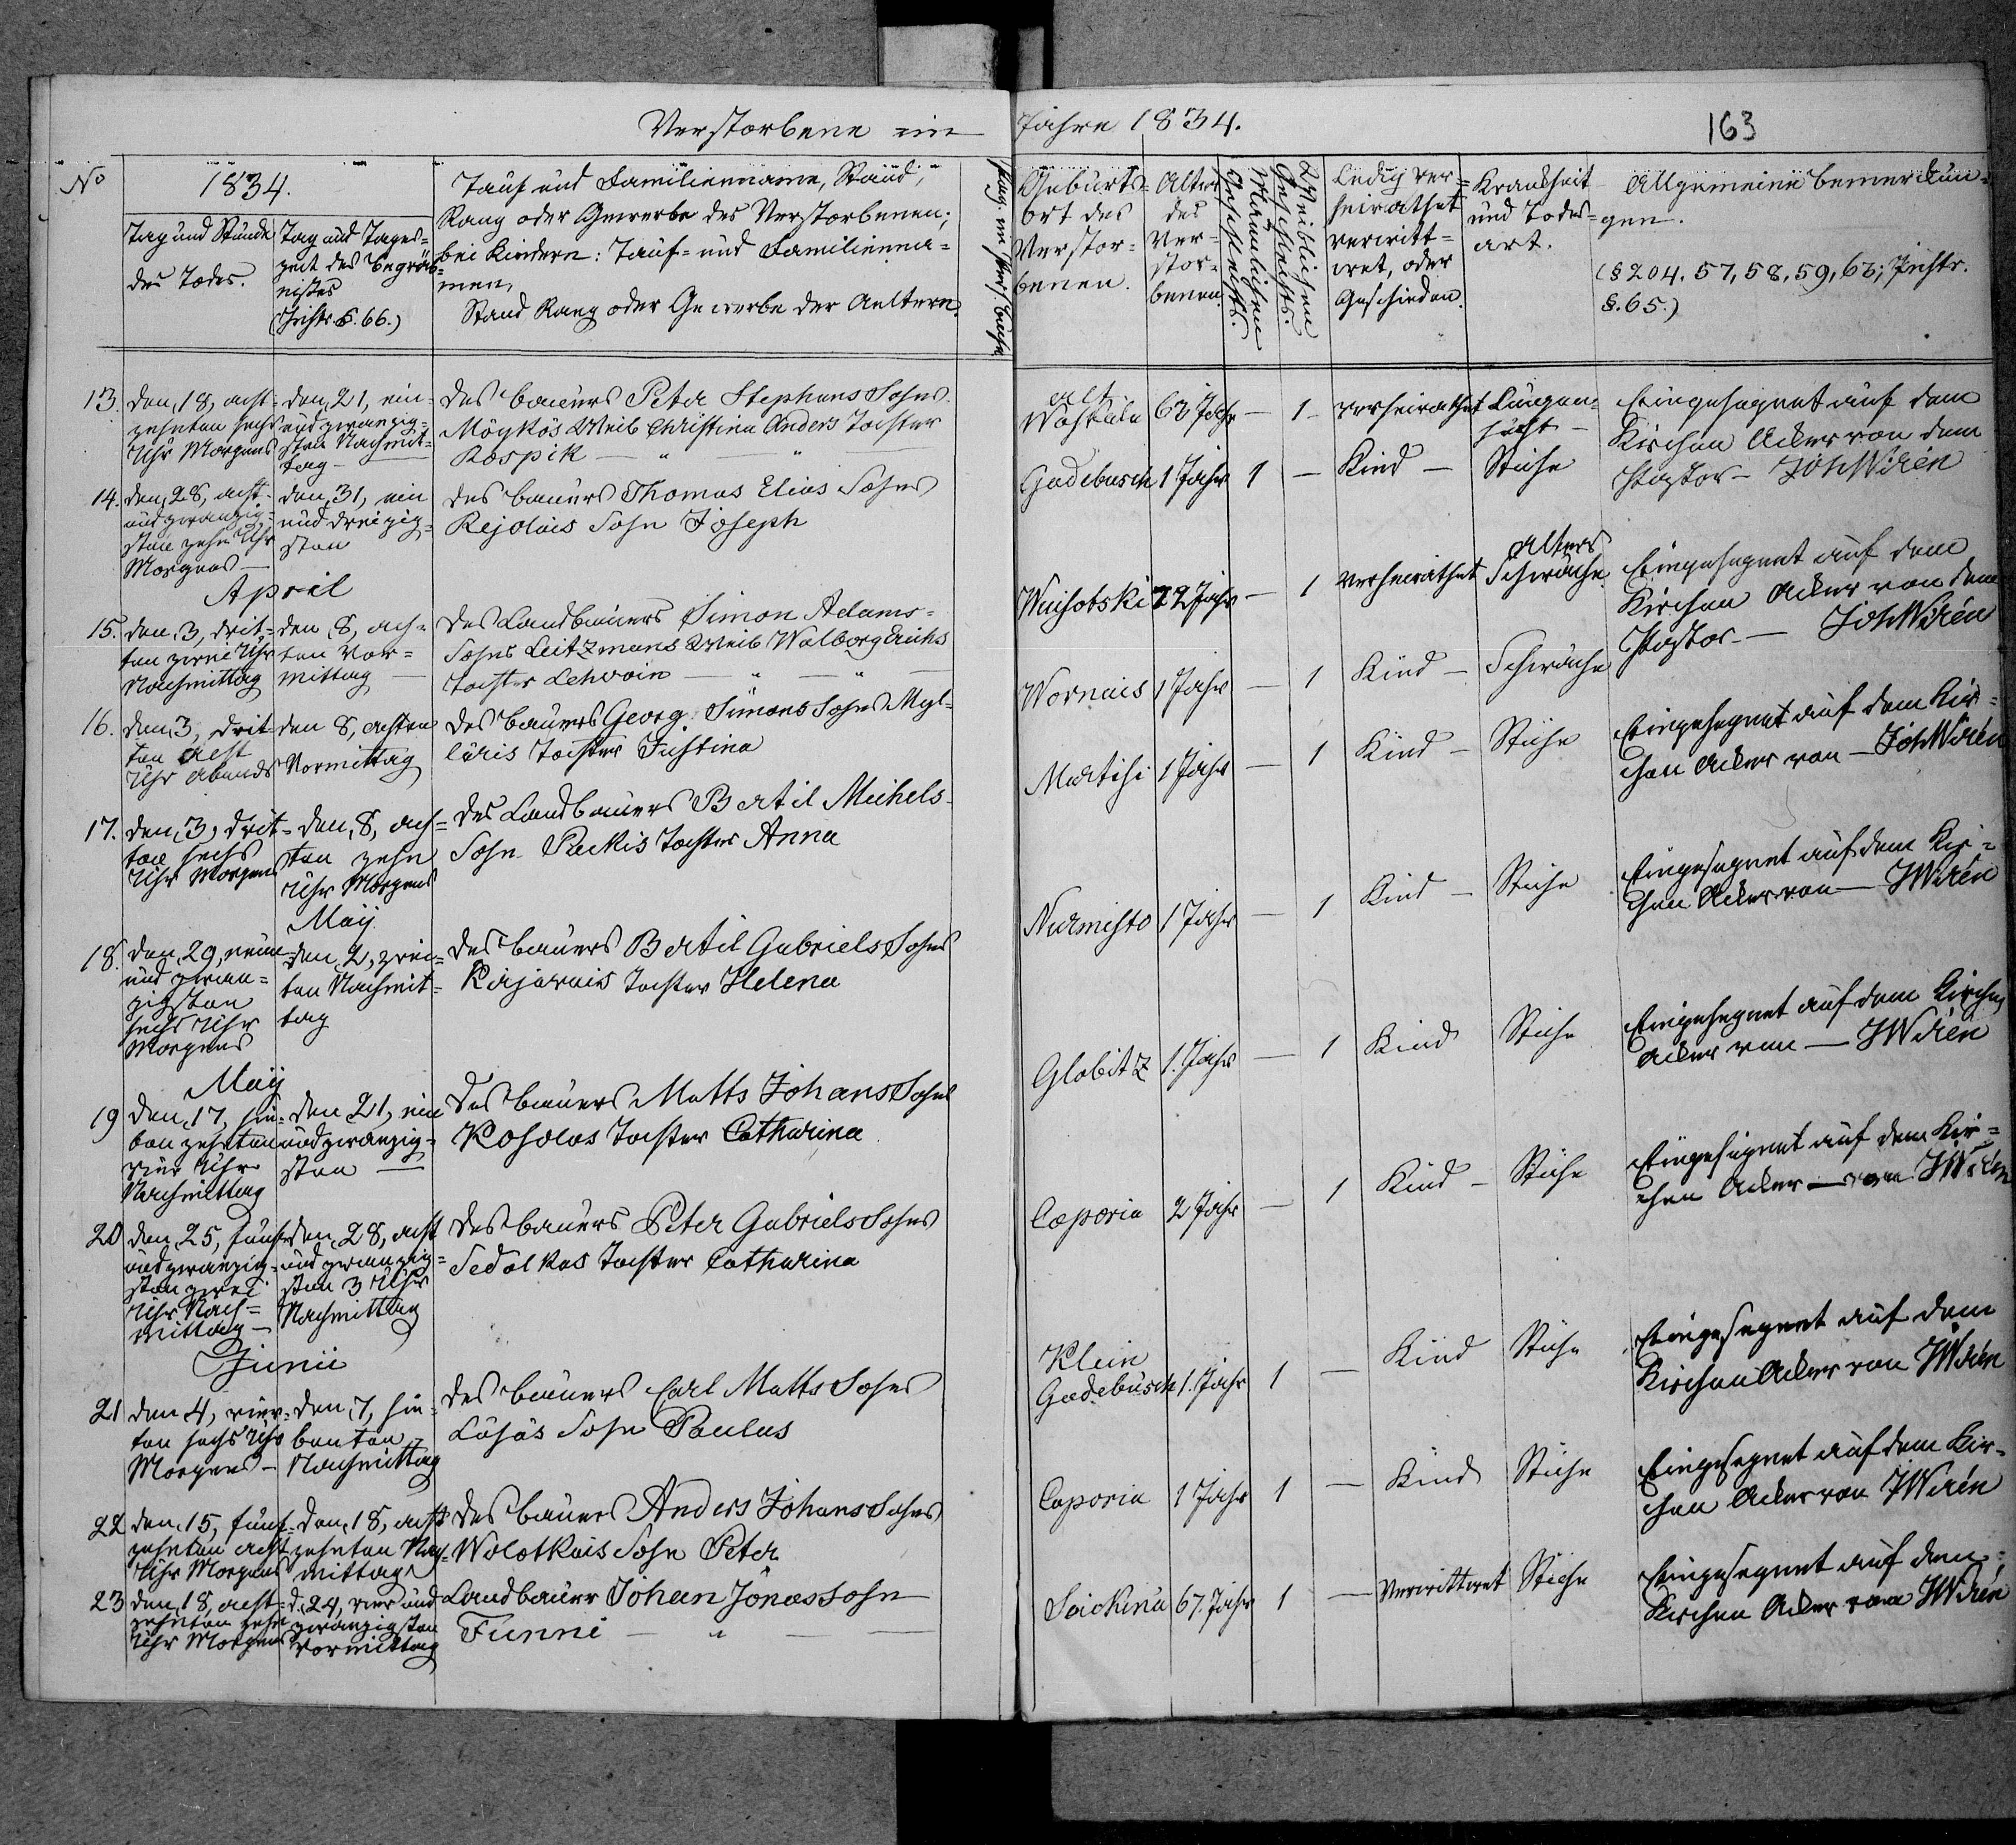 Verstorbene im Jahre 1834.
163
No
1834.
Tag und Stunde
des Todes.
Tag und Tages-
zeit des Begräb-
nisses
(Instr. §. 66.)
Tauf und Familienname, Stand,
Rang oder Gewerbe des Verstorbenen;
bei Kindern: Tauf- und Familienna-
men,
Stand Rang oder Gewerbe der Aeltern.
Geburts-
ort des
Verstor-
benen.
Alter
des
Ver-
stor-
benen.
Männlichen
Geschlechts.
Weiblichen
Geschlechts.
Ledig ver-
heirathet
verwitt-
wet, oder
Geschieden.
Krankheit
und Todes-
art.
Allgemeine Bemerkun-
gen.
(§ 204. 57, 58, 59, 63; Instr.
§. 65.)
13.
den 18, acht-
zehnten sechs
Uhr Morgens
den 21, ein-
und zwanzig-
sten Nachmit-
tag —
des Bauers Peter Stephans Sohns
Möykös Weib Christina Anders Tochter
Kospik — " — "
alt
Woskula
62 Jahr
—
1
verheirathet
Lungen-
sucht —
Eingesegnet auf dem
Kirchen Acker von dem
Pastor — Joh Wirén
14.
den 28, acht-
und zwanzig-
sten zehn Uhr
Morgens —
den 31, ein
und dreizig-
sten
des Bauers Thomas Elias Sohns
Rejolais Sohn Joseph
Gadebusch
1 Jahr
1
—
Kind —
Stiche
April
15.
den 3, drit-
ten zwei Uhr
Nachmittag
den 8, ach-
ten Vor-
mittag —
des Landbauers Simon Adams-
Sohns Leitzmans Weib Walborg Erichs
Tochter Lehwoin — " — "
Wuisotski
72 Jahr
—
1
verheirathet
Alters
Schwäche
Eingesegnet auf dem
Kirchen Acker von dem
Pastor — Joh Wirén
16.
den 3, drit-
ten acht
Uhr Abends
den 8, achten
Vormittag
des Bauers Georg Simons Sohns Myl-
läris Tochter Justina
Wornais
1 Jahr
—
1
Kind —
Schwäche
17.
den 3, drit-
ten sechs
Uhr Morgens
den 8, ach-
ten zehn
Uhr Morgens
des Landbauers Bertil Michels-
Sohn Packis Tochter Anna
Martisi
1 Jahr
—
1
Kind —
Stiche
Eingesegnet auf dem Kir-
chen Acker von — Joh Wirén
Maij
18.
den 29, neun
und zwan-
zigsten
sechs Uhr
Morgens
den 2, zwei-
ten Nachmit-
tag
des Bauers Bertil Gabriels Sohns
Kirjarais Tochter Helena
Nurmisto
1 Jahr
—
1
Kind —
Stiche
Eingesegnet auf dem Kir-
chen Acker von — J Wirén
Maij
19
den 17, sie-
ben zehnten
vier Uhr
Nachmittag
den 21, ein
und zwanzig-
sten —
des Bauers Matts Johans Sohns
Kosolas Tochter Catharina
Globitz
1. Jahr
—
1
Kind
Stiche
Eingesegnet auf dem Kirchen
Acker von — J Wirén
20
den 25, fünf
und zwanzig-
sten zwei
Uhr Nach-
mittag —
den 28, acht
und zwanzig-
sten 3 Uhr
Nachmittag
des Bauers Peter Gabriels Sohns
Sedolkas Tochter Catharina
Caporia
2 Jahr
—
1
Kind —
Stiche
Eingesegnet auf dem Kir-
chen Acker — von J Wirén
Junii
21
den 4, vier-
ten sechs Uhr
Morgens —
den 7, sie-
benten
Nachmittag
des Bauers Carl Matts Sohns
Lusas Sohn Paulus
Klein
Gadebusch
1. Jahr
1
—
Kind
Stiche
Eingesegnet auf dem
Kirchen Acker von J Wirén
22
den 15, fünf-
zehnten acht
Uhr Morgens
den 18, acht
zehnten Nach-
mittag
des Bauers Anders Johans Sohns
Wolotkais Sohn Peter
Caporia
1 Jahr
1
—
Kind
Stiche
Eingesegnet auf dem Kir-
chen Acker von J Wirén
23
den 18, acht-
zehnten zehn
Uhr Morgens
d. 24, vier und
zwanzigsten
Vormittag
Landbauer Johan Jönas Sohn
Funni — " —
Saickina
67. Jahr
1
—
Verwittwet
Stiche
Eingesegnet auf dem
Kirchen Acker von J Wirén